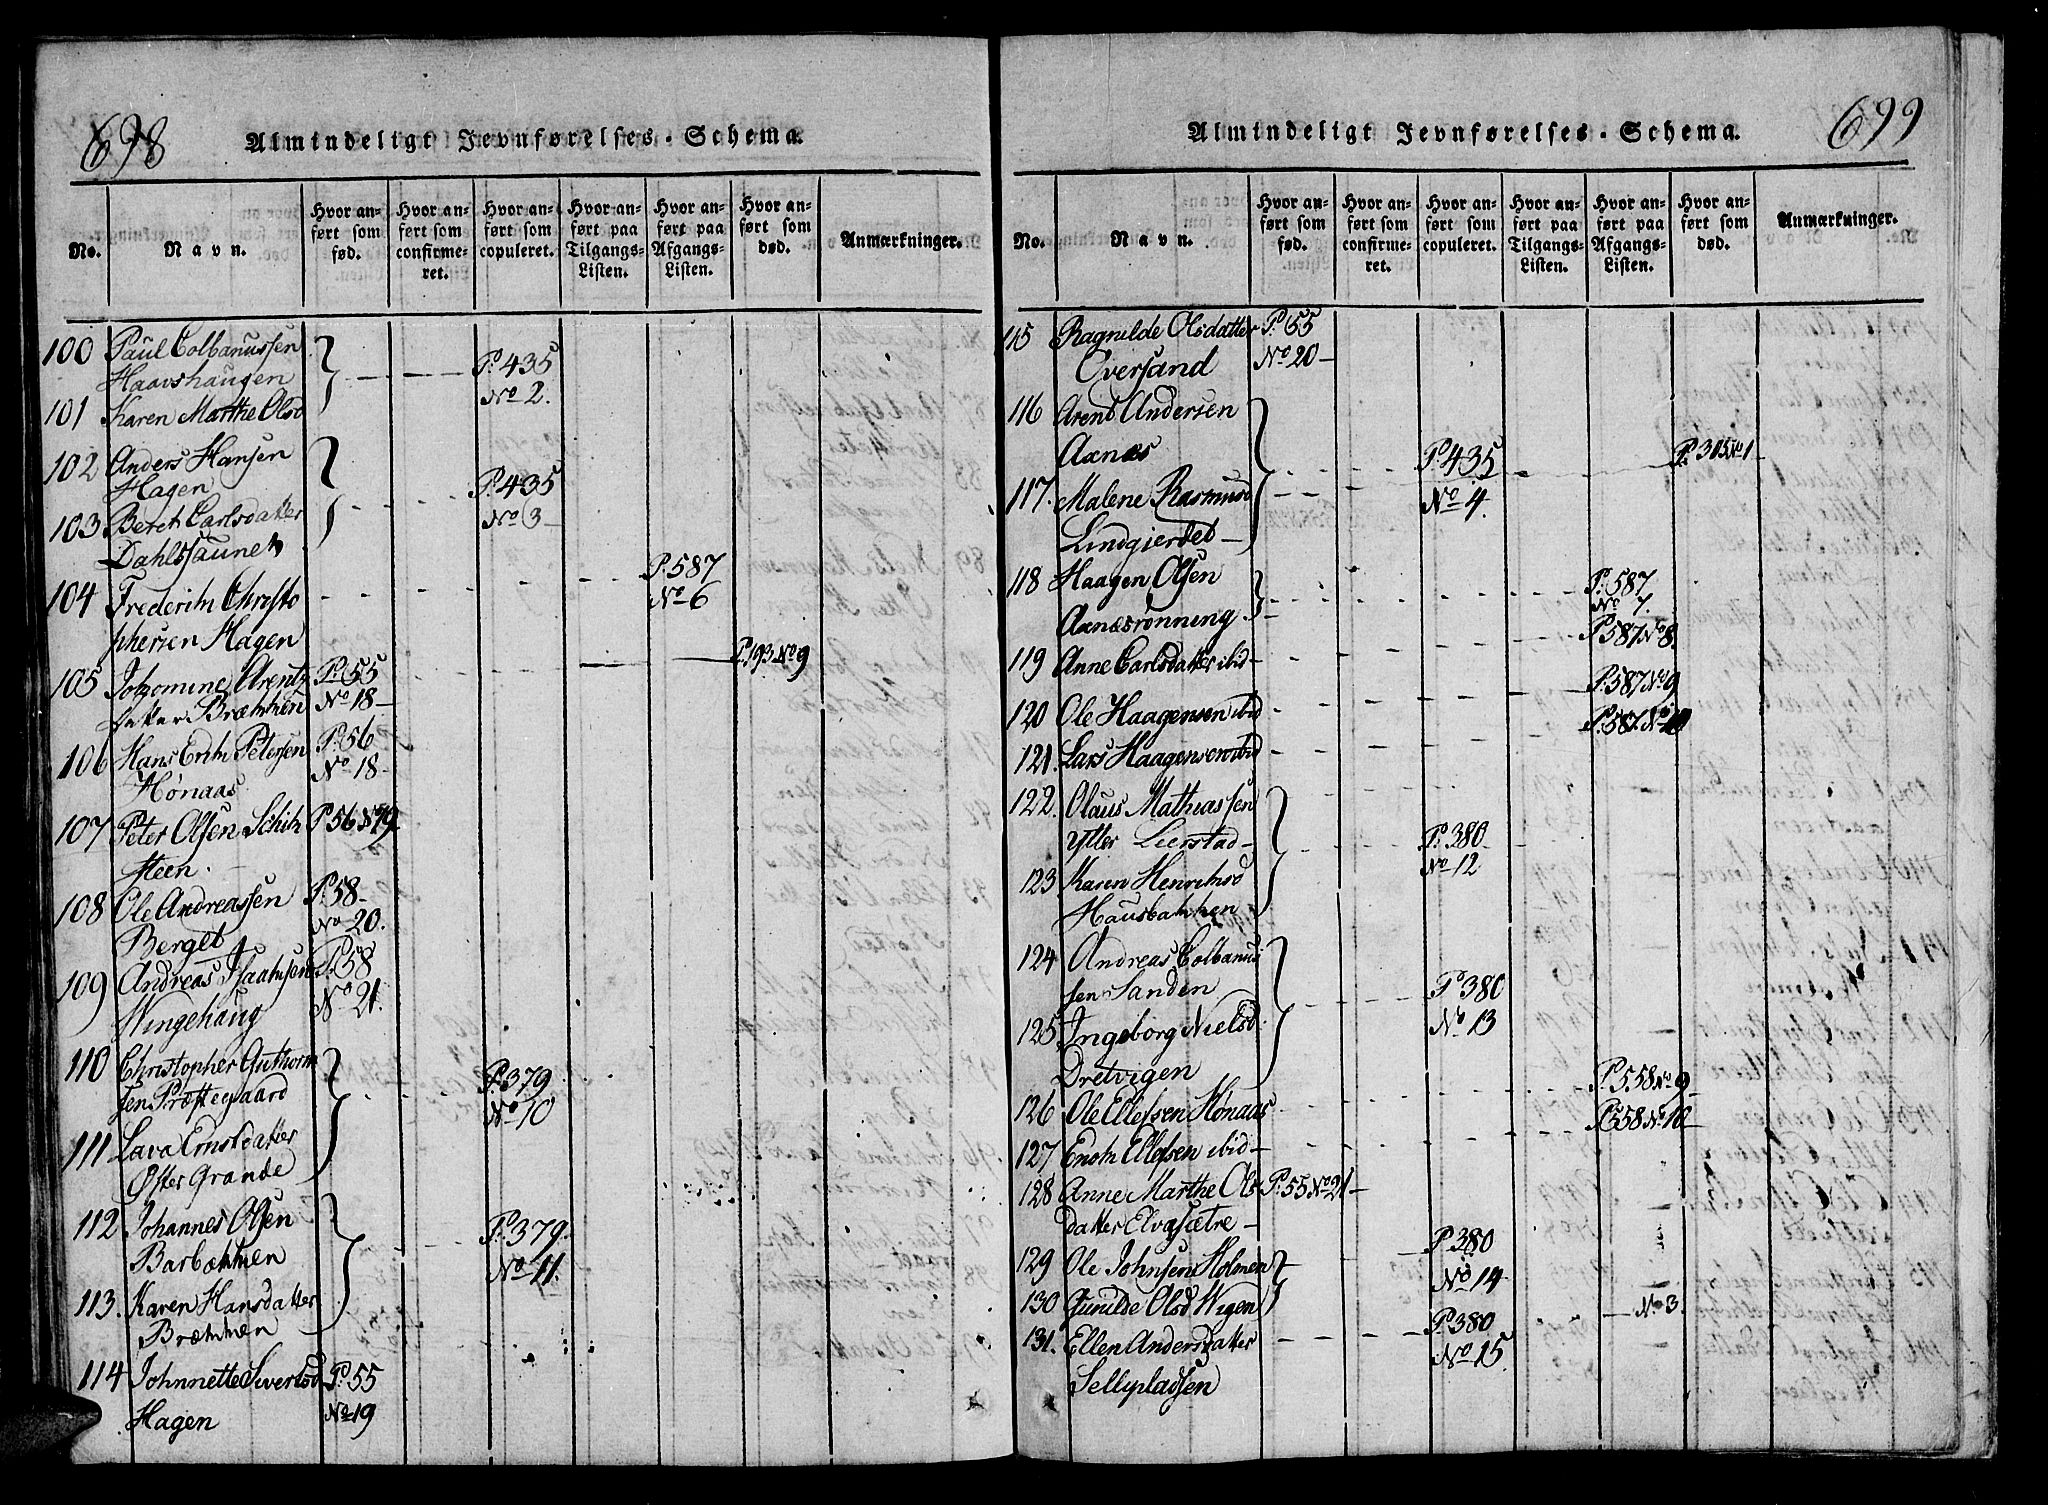 698
Almindeligt Jevnførelses-Schema.
No.
Navn.
Hvor an-
ført som
fød.
Hvor an-
ført som
confirme-
ret.
Hvor an-
ført som
copuleret.
Hvor an-
ført paa
Tilgangs-
Listen.
Hvor an-
ført paa
Afgangs-
Listen.
Hvor an-
ført som
død.
Anmærkninger.
100 Paul Colbanussen
Haavshaugen P. 435
No 2.
101 Karen Marthe Olsd
102 Anders Hansen
Hagen P. 435
103 Beret Carlsdatter No 3
Dahlssaunet
104 Frederich Christo P. 587
phersen Hagen No 6
P. 193 No 9
105 Arentz P. 55
datter Brækken No 18
106 Hans Erich Petersen P. 56
Hønaas No 18
107 Peter Olsen Schih P. 56 No 19
steen.
108 Ole Andreassen P. 58
Berget No 20.
109 Andreas Isaachsen P. 58
Wingehaug No 21.
110 Christopher Guthorm
sen Præstegaard P. 379
No 10
111 Lava Ernstdatter
Øster Grande
112 Johannes Olsen P. 379.
Barbækken No 11.
113. Karen Hansdatter
Brækken
114 Johnnette Sivertsd P. 55
Hagen No 19
699
Almindeligt Jevnførelses-Schema.
No.
Navn.
Hvor an-
ført som
fød.
Hvor an-
ført som
confirme-
ret.
Hvor an-
ført som
copuleret.
Hvor an-
ført paa
Tilgangs-
Listen.
Hvor an-
ført paa
Afgangs-
Listen.
Hvor an-
ført som
død.
Anmærkninger.
115 Ragnilde Olsdatter P. 55
Oversand No 20
116 Arent Andersen
Axnes P. 435 P. 305 No 1
117. Malene Rasmusd No 4.
Lindgjerdet
118 Haagen Olsen P. 587
Axnesrønning No 7.
P. 587 No 8
119 Anne Carlsdatter ibid
P. 587 No 9
120 Ole Haagensen ibid P. 587 No 10
121. Lars Haagensen ibid
122. Olaus Mathiassen
Ytter Leerstad P. 380
No 12
123 Karen Henrichsd
Hausbakken
124 Andreas Colbanus
sen Sanden P. 380
125 Ingeborg Nielsd No 13
Dretvigen P. 558 No 9
126 Ole Ellefsen Hønaas P. 558 No 10
127 Enoch Ellefsen ibid
128 Anne Marthe Ols P. 55 No 21
datter Elvasætre P. 380
129 Ole Johnsen Holmen No 14
130 Gunilde Olsd Wigen No 3.
131. Ellen Andersdatter P. 380
Sellypladsen No 15